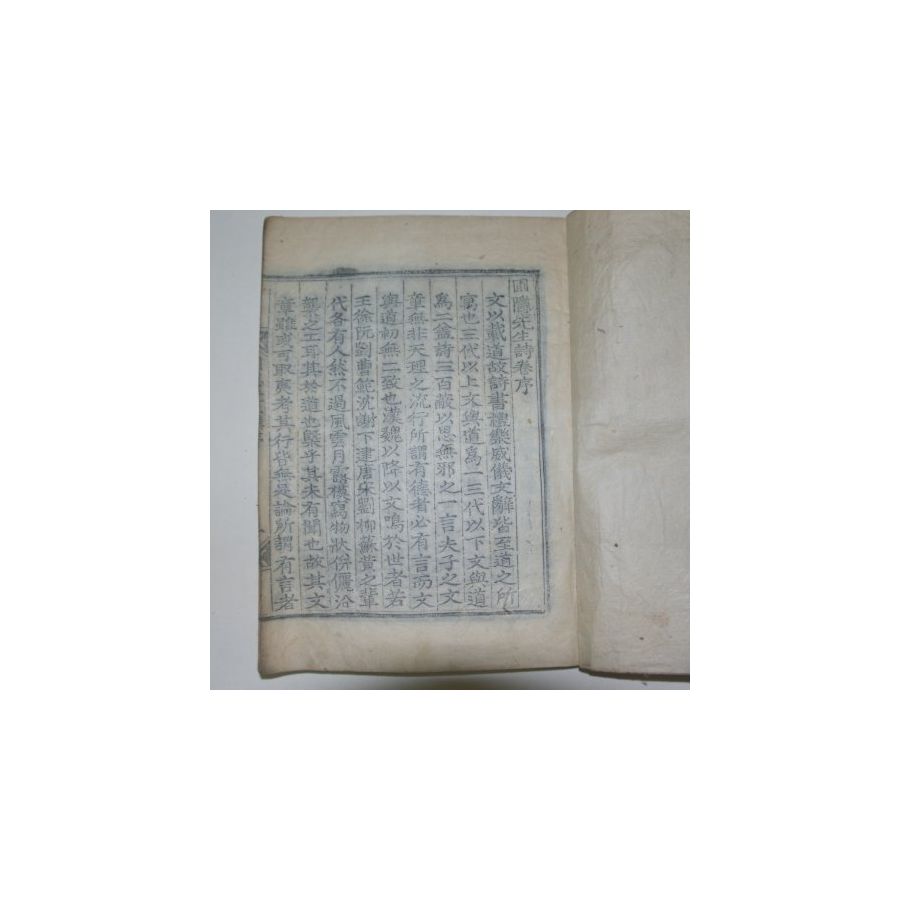 圃隱先生詩卷序
文以載道故詩書禮樂威儀文辭皆至道之所
寓也三代以上文與道爲一三代以下文與道
爲二盖詩三百蔽以思無邪之一言夫子之文
章無非天理之流行所謂有德者必有言而文
與道初無二致也漢魏以降以文鳴於世者若
王徐阮劉曹鮑沈謝下逮唐宋劉柳蘇黃之輩
代各有人然不過風雲月露模寫物狀倂儷沿
襲之工耳其於道也槩乎其未有聞也故其文
章雖或可取夷考其行皆無是論所謂有言者